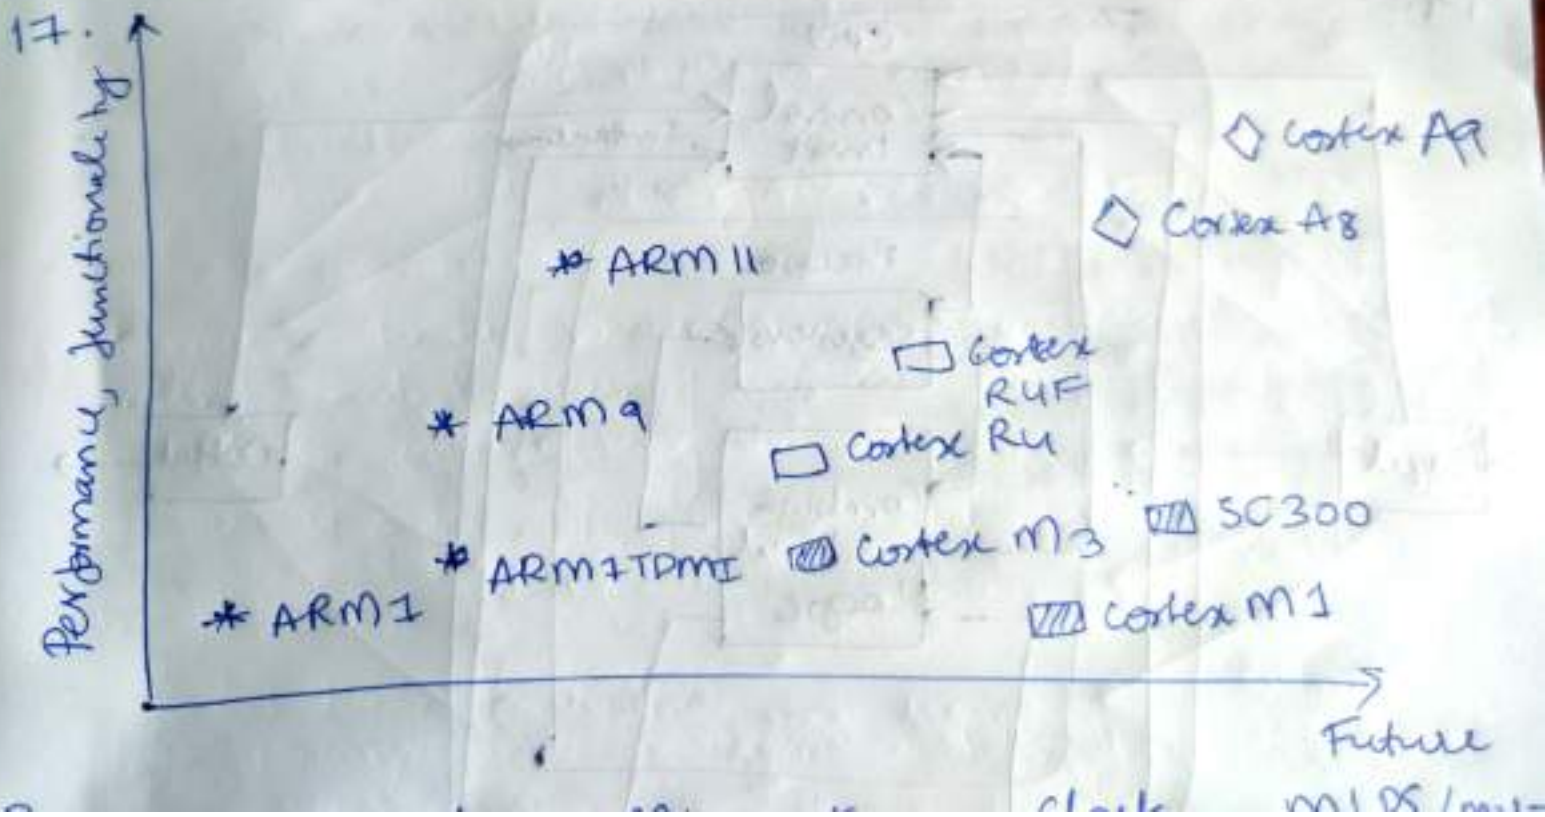 17.
Performance, functionality
Cortex A9
Cortex A8
ARM 11
Cortex
R4F
ARM 9
Cortex R4
SC300
Cortex M3
ARM7TDMI
ARM1
Cortex M1
Future
Clock